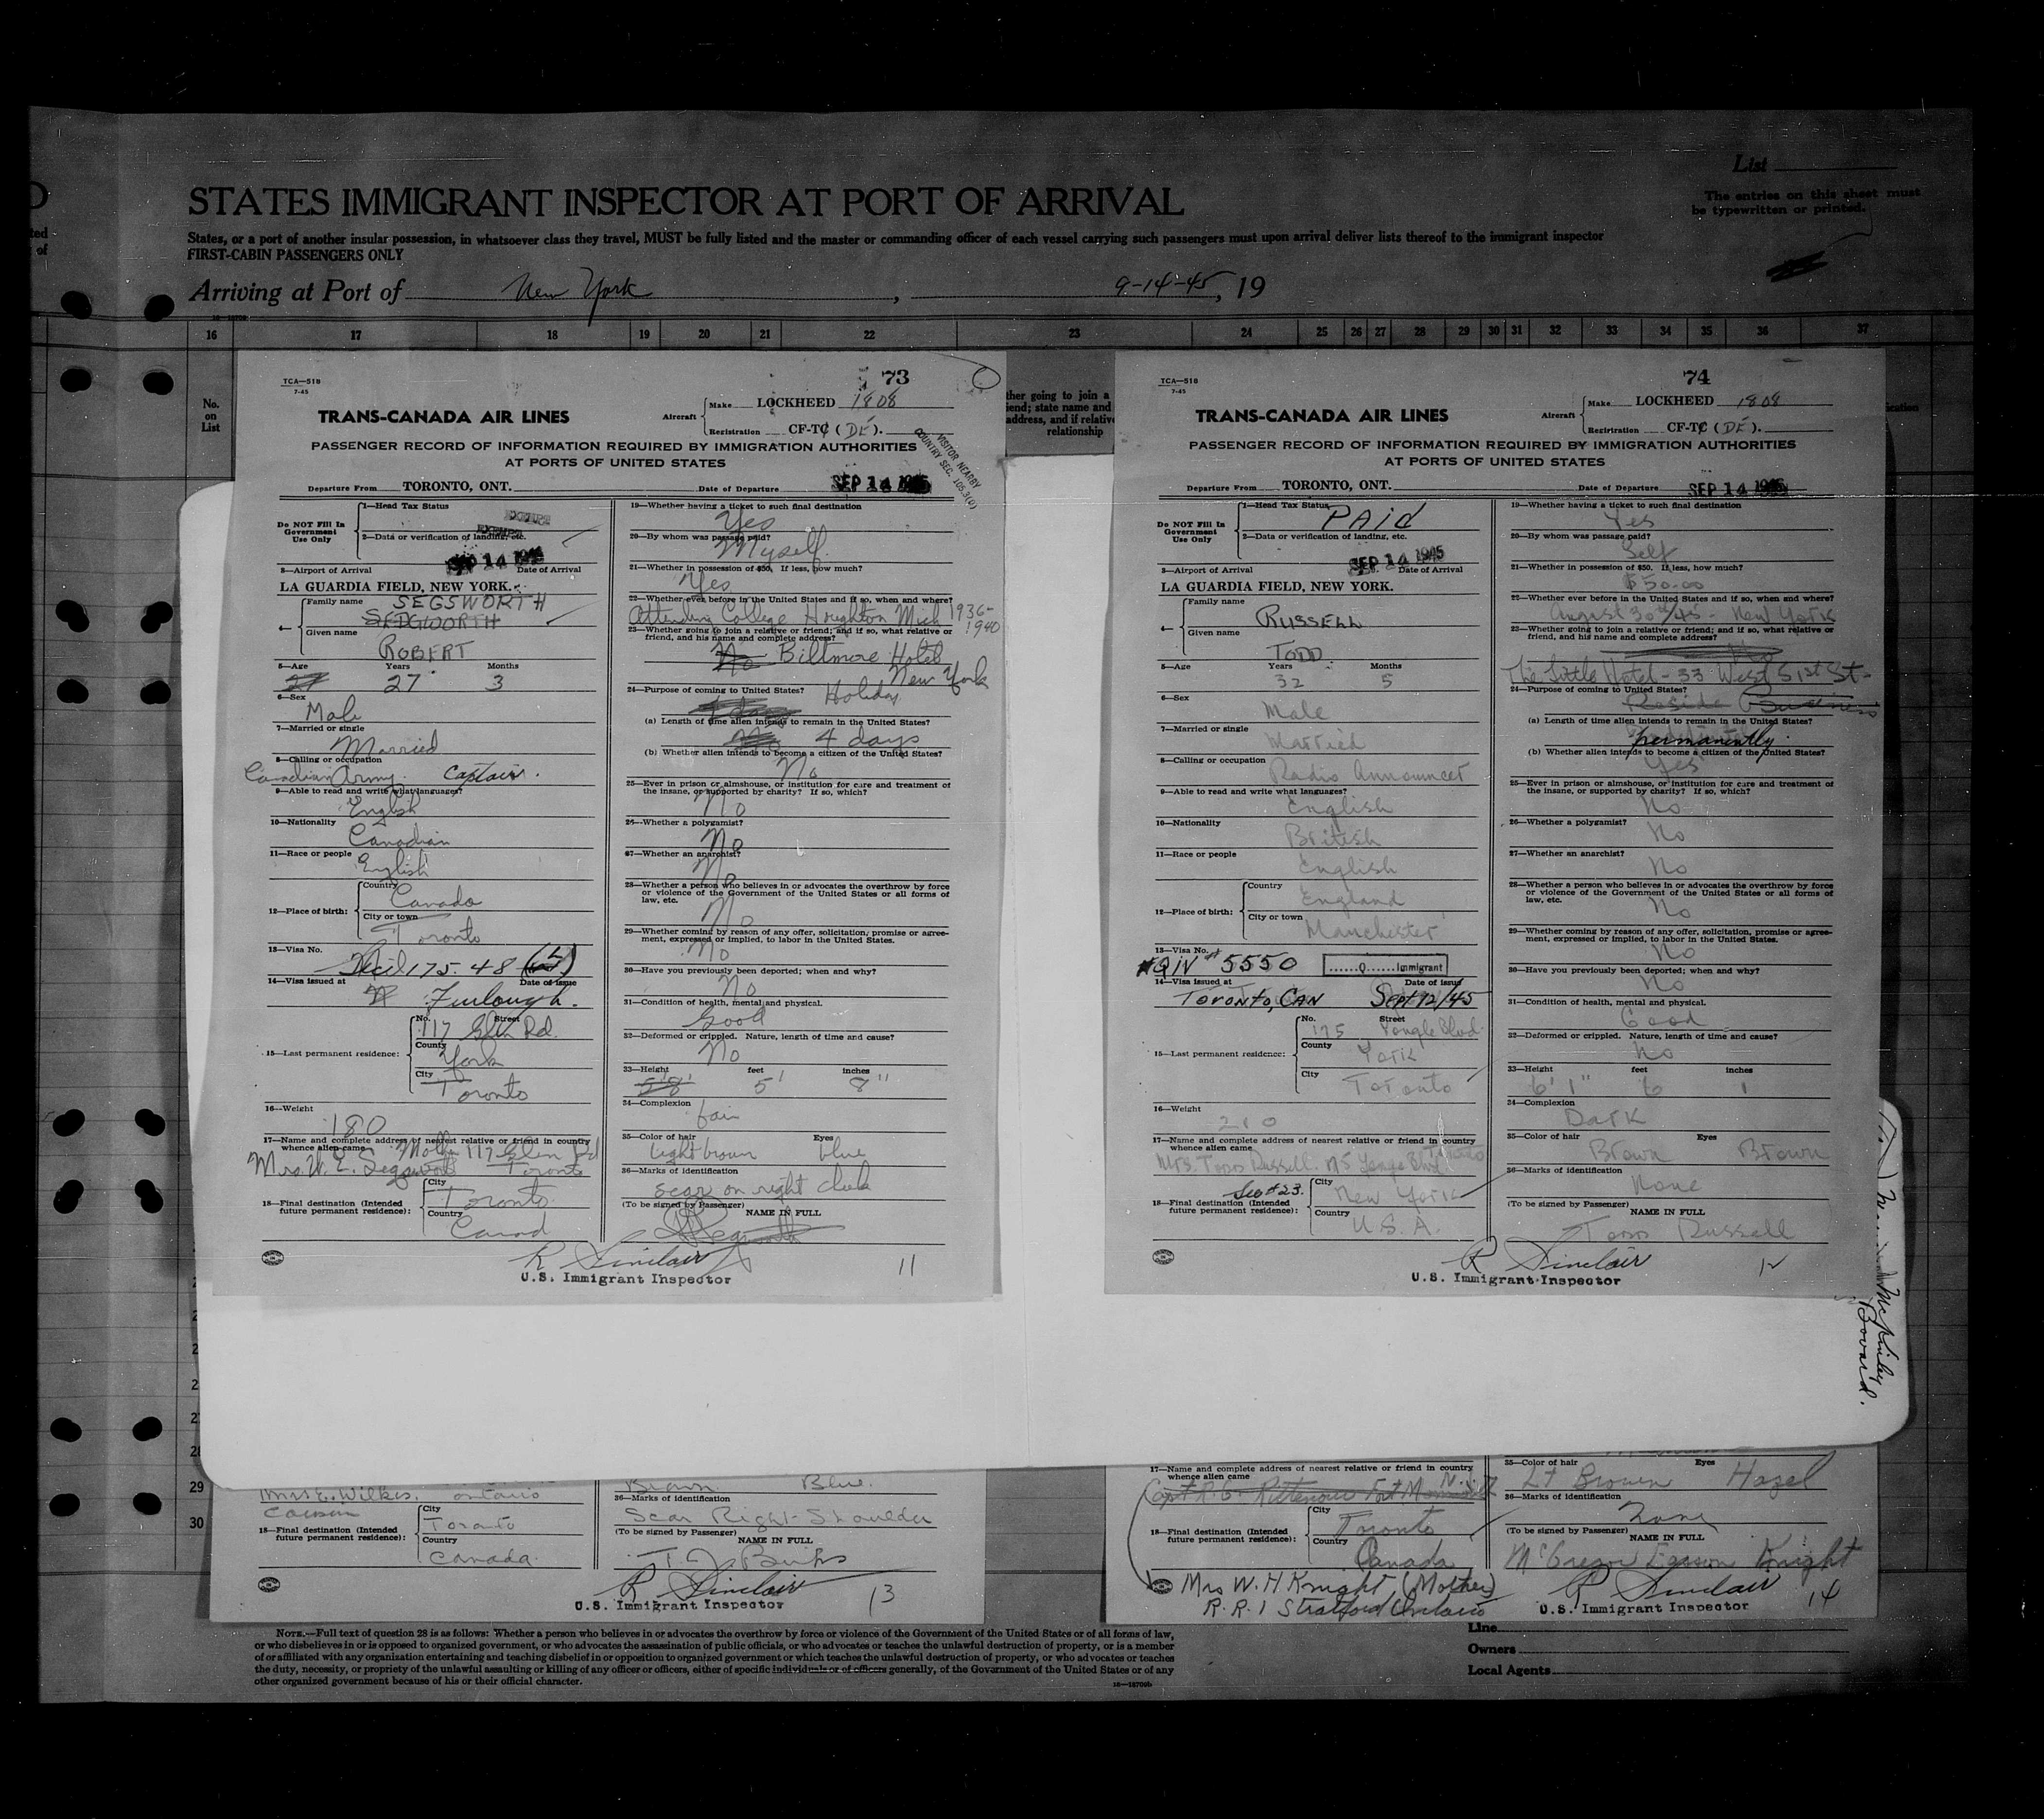 List
The entries on this sheet must
be typewritten or printed.
STATES IMMIGRANT INSPECTOR AT PORT OF ARRIVAL
States, or a port of another insular possession, in whatsoever class they travel, MUST be fully listed and the master or commanding officer of each vessel carrying such passengers must upon arrival deliver lists thereof to the immigrant inspector
FIRST-CABIN PASSENGERS ONLY
Arriving at Port of New York, 9-14-45, 19
16 17 18 19 20 21 22 23 24 25 26 27 28 29 30 31 32 33 34 35 36 37
No.
on
List
TCA—518
7-45
73
Aircraft Make LOCKHEED 1808
Registration CF-TC (DE).
TRANS-CANADA AIR LINES
PASSENGER RECORD OF INFORMATION REQUIRED BY IMMIGRATION AUTHORITIES
AT PORTS OF UNITED STATES
VISITOR NEARBY
COUNTRY SEC. 105.3(a)
Departure From TORONTO, ONT. Date of Departure SEP 14 1945
Do NOT Fill In
Government
Use Only
1—Head Tax Status
EXEMPT
2—Data or verification of landing, etc.
SEP 14 1945
3—Airport of Arrival Date of Arrival
LA GUARDIA FIELD, NEW YORK.
4— Family name SEGSWORTH
SEDGWORTH
Given name ROBERT
5—Age Years Months
27 27 3
6—Sex
Male
7—Married or single
Married
8—Calling or occupation
Canadian Army. Captain.
9—Able to read and write what languages?
English
10—Nationality
Canadian
11—Race or people
English
12—Place of birth: Country Canada
City or town Toronto
13—Visa No.
175.48
14—Visa issued at Date of issue
Furlough.
15—Last permanent residence: No. Street 117 Glen Rd.
County York
City Toronto
16—Weight
180
17—Name and complete address of nearest relative or friend in country
whence alien came Mother 117 Glen Rd
Mrs. W. E. Segsworth Toronto
18—Final destination (Intended
future permanent residence): City Toronto
Country Canad
19—Whether having a ticket to such final destination
Yes
20—By whom was passage paid?
Myself
21—Whether in possession of $50. If less, how much?
Yes
22—Whether ever before in the United States and if so, when and where?
Attending College Houghton Mich 1936-
1940
23—Whether going to join a relative or friend; and if so, what relative or
friend, and his name and complete address?
No Biltmore Hotel
New York
24—Purpose of coming to United States?
Holiday
(a) Length of time alien intends to remain in the United States?
4 days
(b) Whether alien intends to become a citizen of the United States?
No
25—Ever in prison or almshouse, or institution for care and treatment of
the insane, or supported by charity? If so, which?
No
26—Whether a polygamist?
No
27—Whether an anarchist?
No
28—Whether a person who believes in or advocates the overthrow by force
or violence of the Government of the United States or all forms of
law, etc.
No
29—Whether coming by reason of any offer, solicitation, promise or agree-
ment, expressed or implied, to labor in the United States.
No
30—Have you previously been deported; when and why?
No
31—Condition of health, mental and physical.
Good
32—Deformed or crippled. Nature, length of time and cause?
No
33—Height feet inches
5'8" 5' 8"
34—Complexion
fair
35—Color of hair Eyes
light brown blue
36—Marks of identification
scar on right cheek
(To be signed by Passenger) NAME IN FULL
R Sinclair 11
U.S. Immigrant Inspector
TCA—518
7-45
74
Aircraft Make LOCKHEED 1808
Registration CF-TC (DE).
TRANS-CANADA AIR LINES
PASSENGER RECORD OF INFORMATION REQUIRED BY IMMIGRATION AUTHORITIES
AT PORTS OF UNITED STATES
Departure From TORONTO, ONT. Date of Departure SEP 14 1945
Do NOT Fill In
Government
Use Only
1—Head Tax Status PAID
2—Data or verification of landing, etc.
SEP 14 1945
3—Airport of Arrival Date of Arrival
LA GUARDIA FIELD, NEW YORK.
4— Family name RUSSELL
Given name TODD
5—Age Years Months
32 5
6—Sex
Male
7—Married or single
Married
8—Calling or occupation
Radio Announcer
9—Able to read and write what languages?
English
10—Nationality
British
11—Race or people
English
12—Place of birth: Country England
City or town Manchester
13—Visa No.
QIV # 5550 Immigrant
14—Visa issued at Date of issue
Toronto, CAN Sept 12/45
15—Last permanent residence: No. Street 175 Yonge Blvd.
County York
City Toronto
16—Weight
210
17—Name and complete address of nearest relative or friend in country
whence alien came Toronto
Mrs. Todd Russell. 175 Yonge Blvd
See #23.
18—Final destination (Intended
future permanent residence): City New York
Country U.S.A.
19—Whether having a ticket to such final destination
Yes
20—By whom was passage paid?
Self
21—Whether in possession of $50. If less, how much?
$50.00
22—Whether ever before in the United States and if so, when and where?
August 30th/45 - New York
23—Whether going to join a relative or friend; and if so, what relative or
friend, and his name and complete address?
No
The Little Hotel - 33 West 51st St-
24—Purpose of coming to United States?
Reside Business
(a) Length of time alien intends to remain in the United States?
permanently
(b) Whether alien intends to become a citizen of the United States?
Yes
25—Ever in prison or almshouse, or institution for care and treatment of
the insane, or supported by charity? If so, which?
No
26—Whether a polygamist?
No
27—Whether an anarchist?
No
28—Whether a person who believes in or advocates the overthrow by force
or violence of the Government of the United States or all forms of
law, etc.
No
29—Whether coming by reason of any offer, solicitation, promise or agree-
ment, expressed or implied, to labor in the United States.
No
30—Have you previously been deported; when and why?
No
31—Condition of health, mental and physical.
Good
32—Deformed or crippled. Nature, length of time and cause?
No
33—Height feet inches
6' 1" 6 1
34—Complexion
Dark
35—Color of hair Eyes
Brown Brown
36—Marks of identification
None
(To be signed by Passenger) NAME IN FULL
Todd Russell
R Sinclair 12
U.S. Immigrant Inspector
29
30
Mrs E. Wilkes. Ontario
cousin
18—Final destination (Intended
future permanent residence): City Toronto
Country Canada.
Brown Blue.
36—Marks of identification
Scar Right Shoulder
(To be signed by Passenger) NAME IN FULL
R Sinclair 13
U.S. Immigrant Inspector
17—Name and complete address of nearest relative or friend in country
whence alien came
18—Final destination (Intended
future permanent residence): City Toronto
Country Canada
Mrs W. H. Knight (Mother)
R.R. 1 Stratford Ontario
35—Color of hair Eyes
Lt Brown Hazel
36—Marks of identification
None
(To be signed by Passenger) NAME IN FULL
McGregor Easson Knight
R Sinclair 14
U.S. Immigrant Inspector
NOTE.—Full text of question 28 is as follows: Whether a person who believes in or advocates the overthrow by force or violence of the Government of the United States or of all forms of law,
or who disbelieves in or is opposed to organized government, or who advocates the assassination of public officials, or who advocates or teaches the unlawful destruction of property, or is a member
of or affiliated with any organization entertaining and teaching disbelief in or opposition to organized government or which teaches the unlawful destruction of property, or who advocates or teaches
the duty, necessity, or propriety of the unlawful assaulting or killing of any officer or officers, either of specific individuals or of officers generally, of the Government of the United States or of any
other organized government because of his or their official character.
16—18700b
Line
Owners
Local Agents